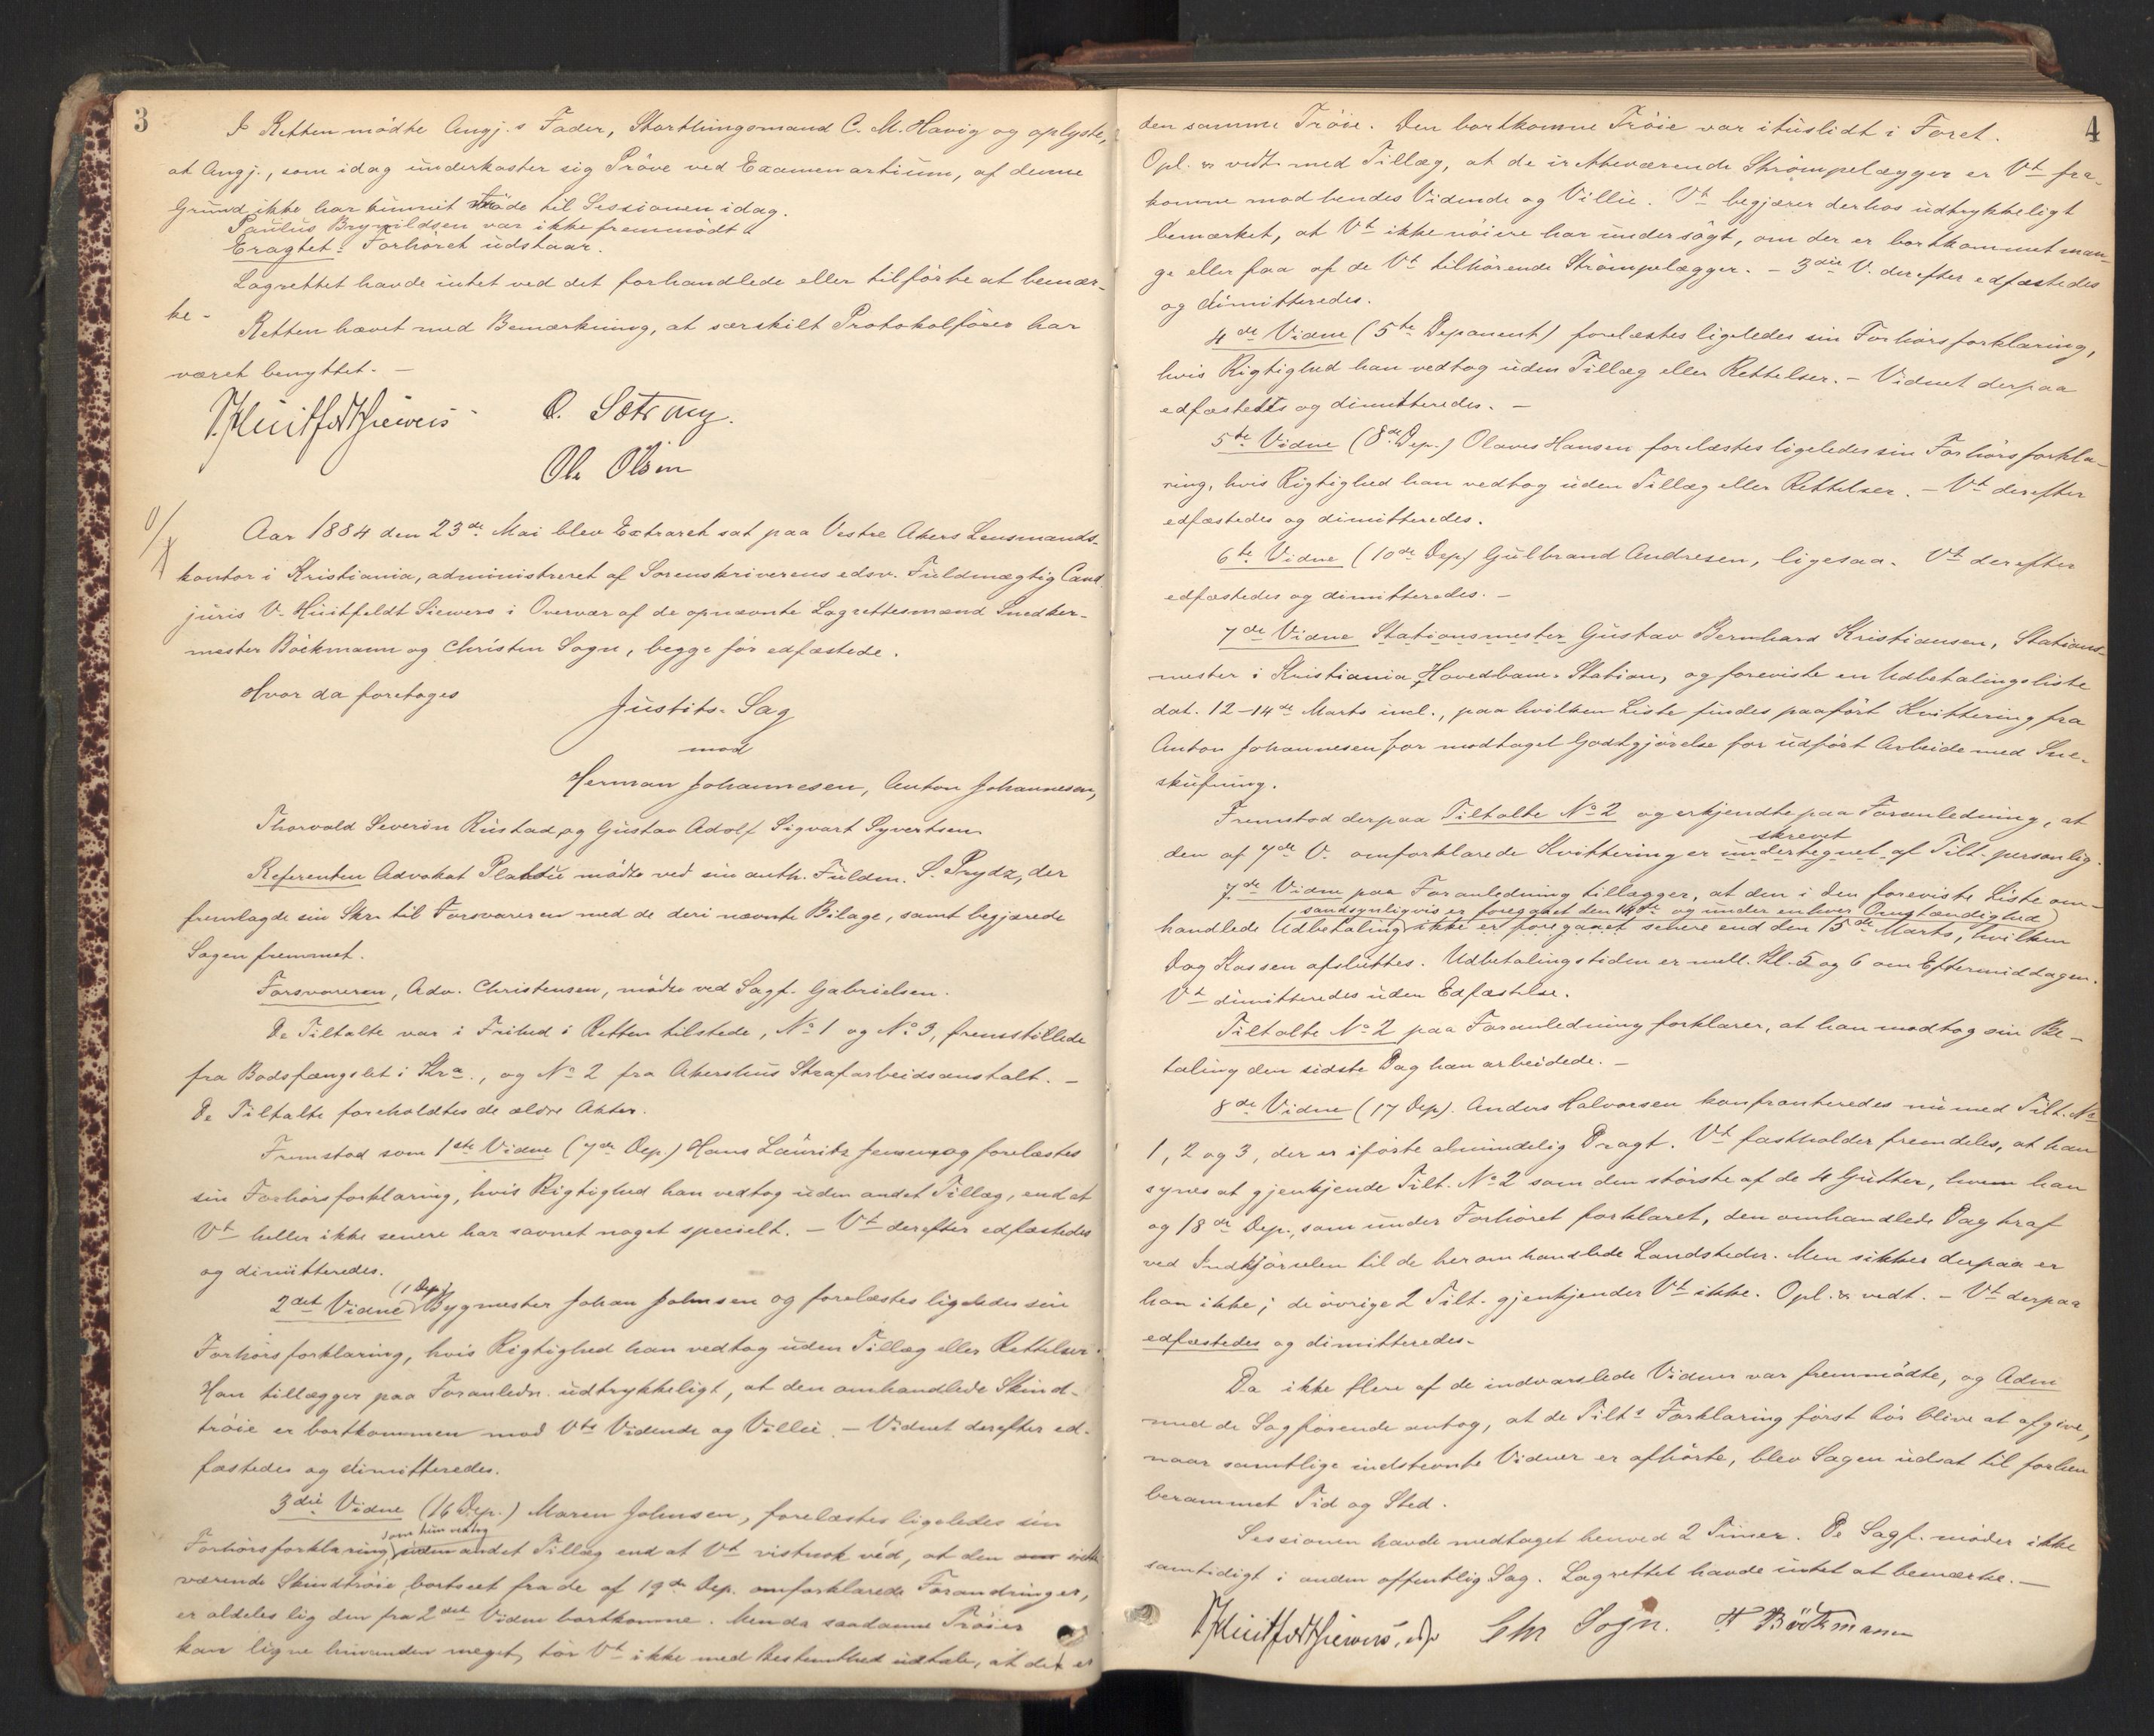 3
I Retten mødte Angj.s Fader, Storthingsmand C. M. Havig og oplyste,
at Angj., som idag underkaster sig Prøve ved Examen artium, af denne
Grund ikke har kunnet møde til Sessionen idag.
Paulus Brynildsen var ikke fremmødt.
Eragtet: Forhøret udstaar.
Lagrettet havde intet ved det forhandlede eller tilførte at bemær-
ke -
Retten hævet med Bemærkning, at særskilt Protokolfører har
været benyttet. -
V. Huitfeldt Siewers O. Sætrang.
Ole Olsen
0/
Aar 1884 den 23de Mai blev Extraret sat paa Vestre Akers Lensmands-
kontor i Kristiania, administreret af Sorenskriverens edsv. Fuldmægtig Cand.
juris V. Huitfeldt Siewers i Overvær af de opnævnte Lagrettesmænd Snedker-
mester Böckmann og Christen Sogn, begge før edfæstede.
Hvor da foretoges
Justits-Sag
mod
Herman Johannesen, Anton Johannesen,
Thorvald Severin Rustad og Gustav Adolf Sigvart Syvertsen
Referenten Advokat Platou mødte ved sin auth. Fuldm. S. Prydz, der
fremlagde sin Skr. til Forsvareren med de deri nævnte Bilage, samt begjærede
Sagen fremmet.
Forsvareren, Adv. Christensen, mødte ved Sagf. Gabrielsen.
De Tiltalte var i Frihed i Retten tilstede, No 1 og No 3, fremstillede
fra Bodsfængslet i Kra., og No 2 fra Akershus Strafarbeidsanstalt. -
De Tiltalte foreholdtes de ældre Akter.
Fremstod som 1ste Vidne (7de Dep.) Hans Lauritz Jensen og forelæstes
sin Forhørsforklaring, hvis Rigtighed han vedtog uden andet Tillæg, end at
Vt heller ikke senere har savnet noget specielt. - Vt derefter edfæstedes
og dimitteredes.
(1 Dep)
2det Vidne Bygmester Johan Johnsen og forelæstes ligeledes sin
Forhørsforklaring, hvis Rigtighed han vedtog uden Tillæg eller Rettelser.
Han tillægger paa Foranledn. udtrykkeligt, at den omhandlede Skind-
trøie er bortkommen mod Vts Vidende og Villie. - Vidnet derefter ed-
fæstedes og dimitteredes.
3die Vidne (16 Dep.) Maren Johnsen, forelæstes ligeledes sin
som hun vedtog
Forhørsforklaring uden andet Tillæg end at Vt vistnok véd, at den irette-
værende Skindtrøie, bortseet fra de af 19de Dep. omforklarede Forandringer,
er aldeles lig den fra 2det Vidne bortkomne. Men da saadanne Trøier
kan ligne hinanden meget, tør Vt ikke med Bestemthed udtale, at det er
4
den samme Trøie. Den bortkomne Trøie var ituslidt i Foret.
Opl. & vedt. med Tillæg, at de iretteværende Strømpelægger er Vt fra-
komne mod hendes Vidende og Villie. Vt begjærer derhos udtrykkeligt
bemærket, at Vt ikke nøiere har undersøgt, om der er bortkommet man-
ge eller faa af de Vt tilhørende Strømpelægger. - 3die V. derefter edfæstedes
og dimitteredes.
4de Vidne (5te Deponent) forelæstes ligeledes sin Forhørsforklaring,
hvis Rigtighed han vedtog uden Tillæg eller Rettelser. - Vidnet derpaa
edfæstedes og dimitteredes. -
5te Vidne (8de Dep.) Olaves Hansen forelæstes ligeledes sin Forhørsforkla-
ring, hvis Rigtighed han vedtog uden Tillæg eller Rettelser. - Vt derefter
edfæstedes og dimitteredes.
6te Vidne (10de Dep) Gulbrand Andresen, ligesaa. Vt derefter
edfæstedes og dimitteredes. -
7de Vidne Stationsmester Gustav Bernhard Kristiansen, Stations-
mester i Kristiania Hovedbane-Station, og foreviste en Udbetalingsliste
dat. 12-14de Marts incl., paa hvilken Liste findes paaført Kvittering fra
Anton Johannesen for modtaget Godtgjørelse for udført Arbeide med Sne-
skufning.
Fremstod derpaa Tiltalte No 2 og erkjendte paa Foranledning, at
skrevet
den af 7de V. omforklarede Kvittering er undertegnet af Tilt. personlig.
7de Vidne paa Foranledning tillægger, at den i den foreviste Liste om-
sandsynligvis er foregaaet den 14de og under enhver Omstændighed
handlede Udbetaling ikke er foregaaet senere end den 15de Marts, hvilken
Dag Kassen afsluttes. Udbetalingstiden er mell. Kl. 5 og 6 om Eftermiddagen.
Vt dimitteredes uden Edfæstelse.
Tiltalte No 2 paa Foranledning forklarer, at han modtog sin Be-
taling den sidste Dag han arbeidede. -
8de Vidne (17 Dep). Anders Halvorsen konfronteredes nu med Tilt. No
1, 2 og 3, der er iførte almindelig Dragt. Vt fastholder fremdeles, at han
synes at gjenkjende Tilt. No 2 som den største af de 4 Gutter, hvem han
og 18de Dep., som under Forhøret forklaret, den omhandlede Dag traf
ved Indkjørselen til de heromhandlede Landsteder. Men sikker derpaa er
han ikke; de øvrige 2 Tilt. gjenkjender Vt ikke. Opl. & vedt. - Vt derpaa
edfæstedes og dimitteredes.
Da ikke flere af de indvarslede Vidner var fremmødte, og Adm
med de Sagførende antog, at de Tilts Forklaring først bør blive at afgive,
naar samtlige indstevnte Vidner er afhørte, blev Sagen udsat til forhen
berammet Tid og Sted.
Sessionen havde medtaget henved 2 Timer. De Sagf. møder ikke
samtidigt i anden offentlig Sag. Lagrettet havde intet at bemærke. -
V. Huitfeldt Siewers, Chr Sogn. H Böckmann